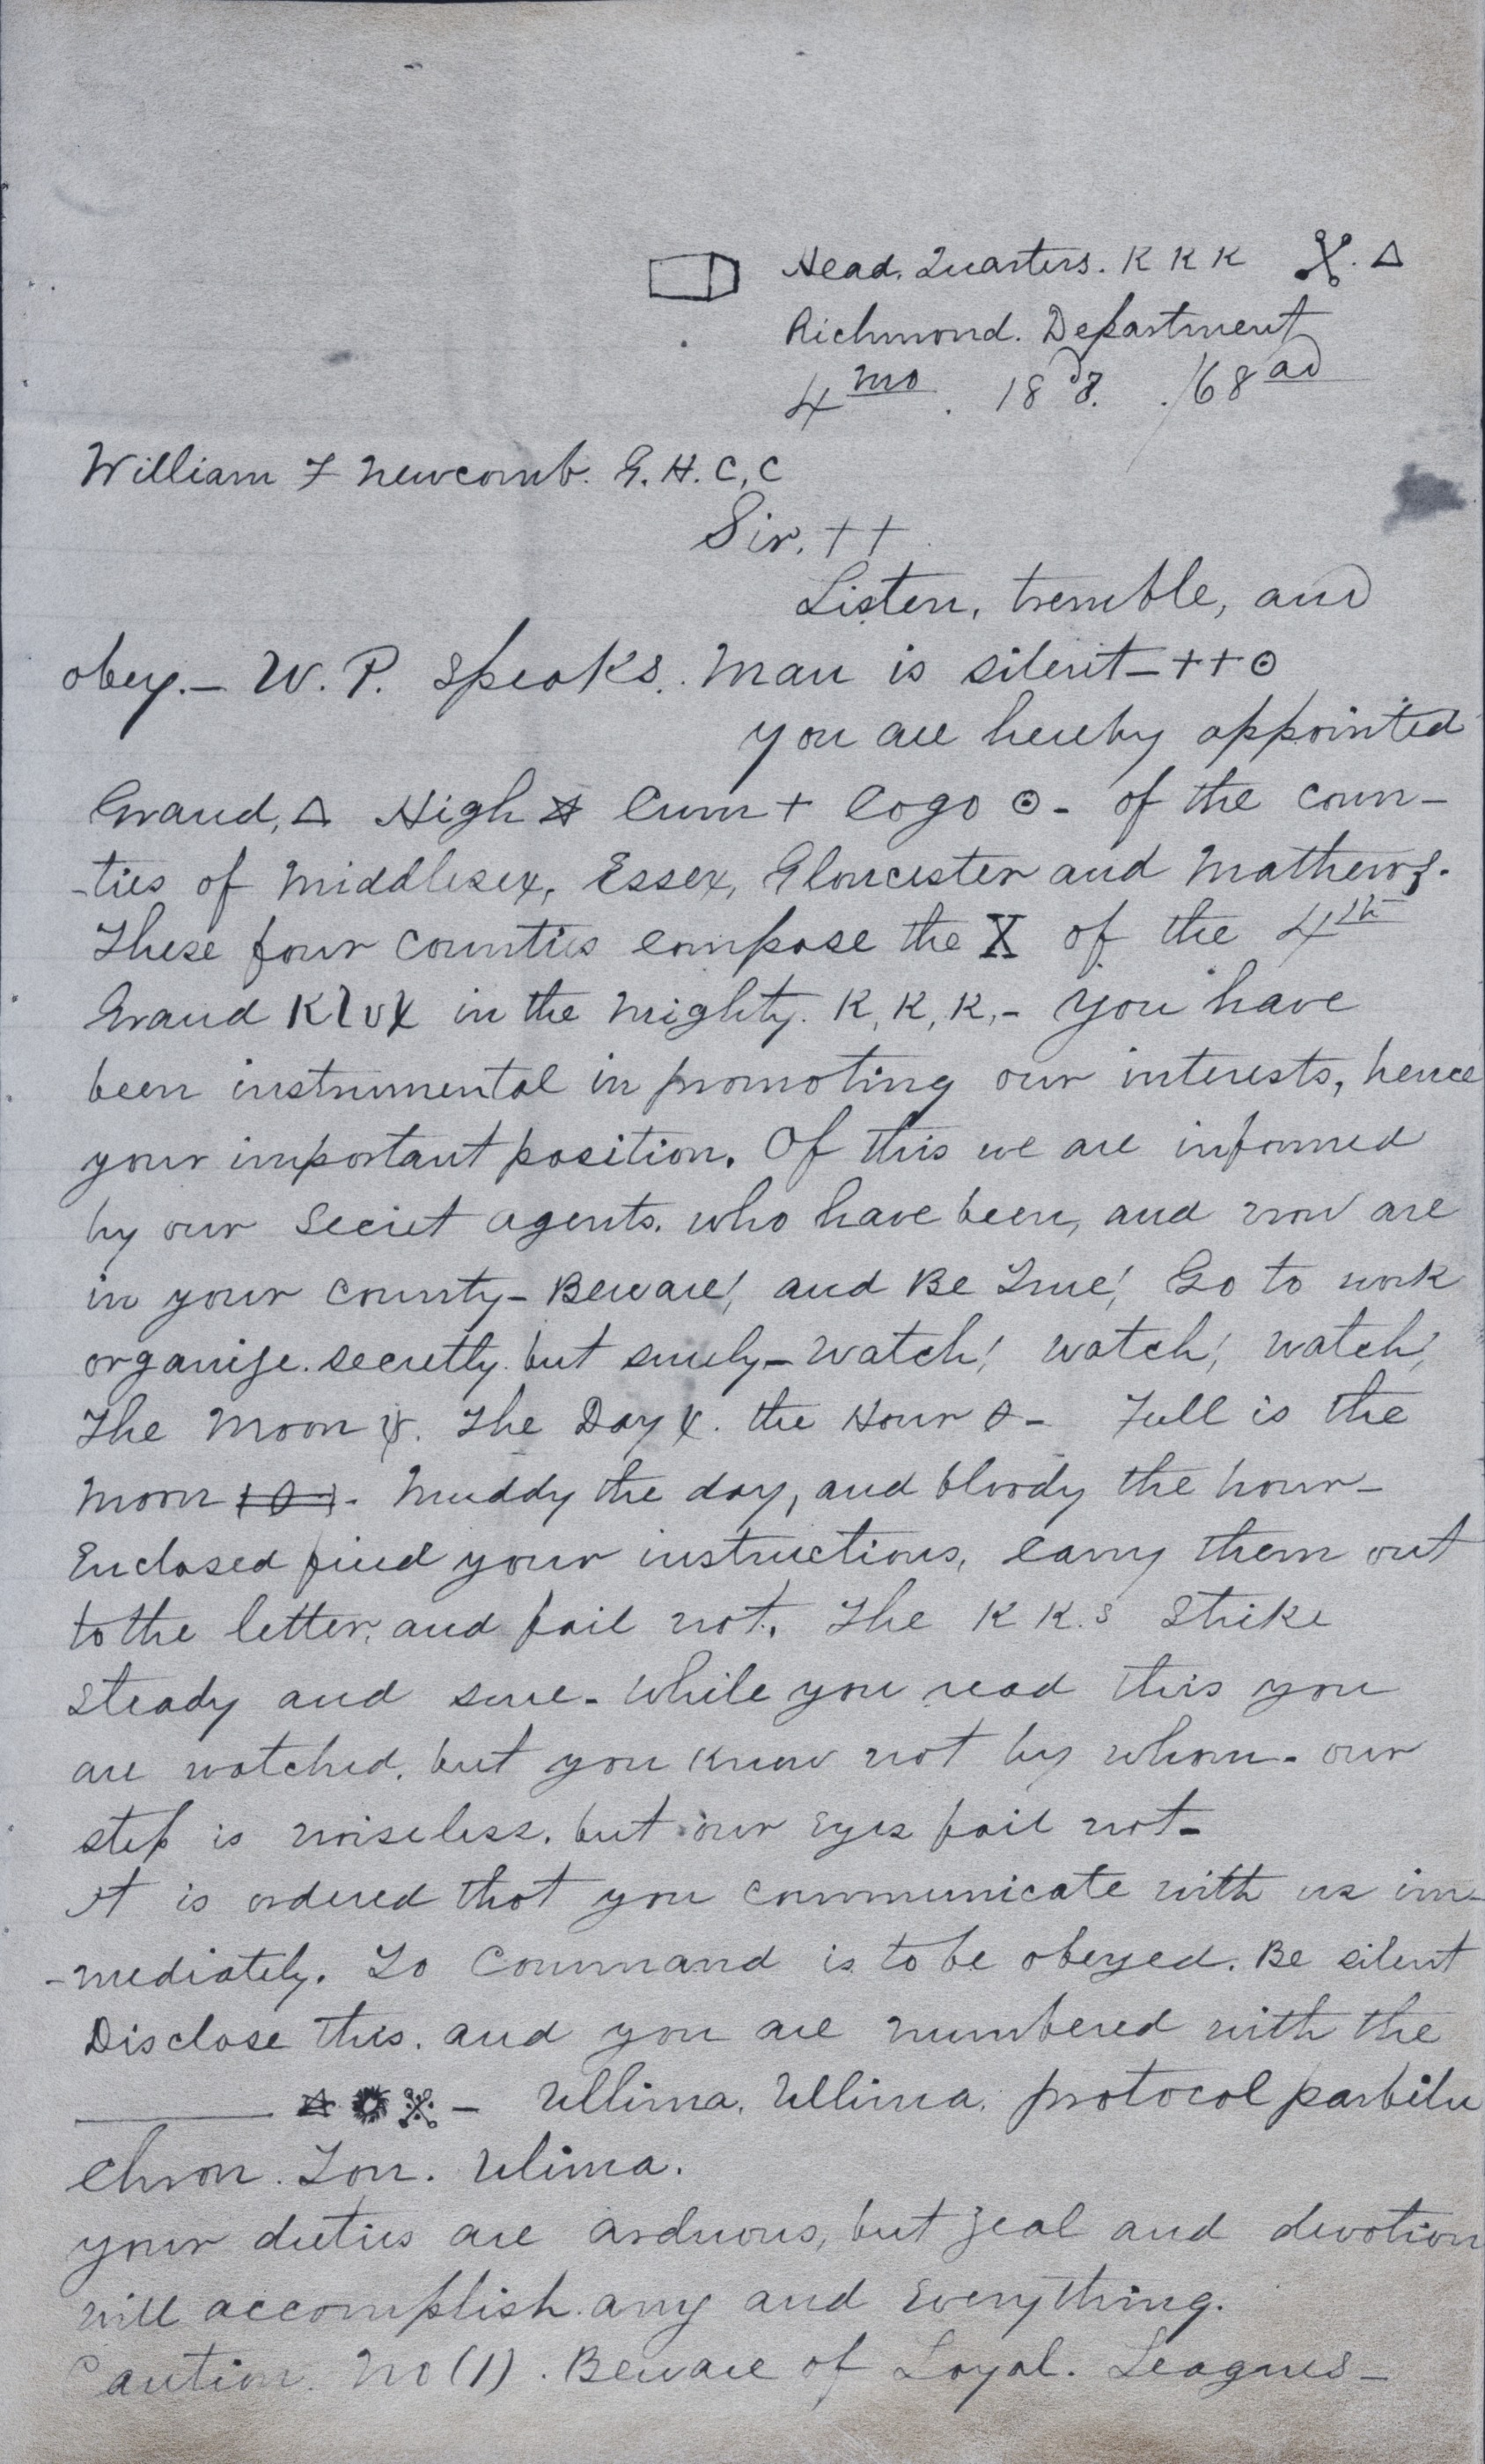 Head. Quarters. K K K
Richmond. Department
4 mo. 18 d. /68 ad
William F Newcomb. G. H. C, C
Sir. ++
Listen, tremble, and
obey. — W. P. speaks. Man is silent — ++ ⊙
you are hereby appointed
Grand, △ High ☆ Cum + Cogo ⊙ - of the coun-
-ties of Middlesex, Essex, Gloucester and Mathews.
These four counties compose the X of the 4th
Grand Klux in the mighty. K, K, K, - you have
been instrumental in promoting our interests, hence
your important position. Of this we are informed
by our Secret agents. who have been, and now are
in your county - Beware! and Be True! Go to work
organize. secretly. but surely - watch! watch! watch!
The Moon. The Day. the Hour - Full is the
moon. Muddy the day, and bloody the hour -
Enclosed find your instructions, carry them out
to the letter, and fail not. The K K.s strike
steady and sure - While you read this you
are watched. but you know not by whom - our
step is noiseless. but our Eyes fail not -
it is ordered that you communicate with us im-
-mediately. To Command is to be obeyed. Be silent
Disclose this. and you are numbered with the
— Ullima. Ullima. protocol parbilu
chron. Ton. Ulima.
your duties are arduous, but zeal and devotion
will accomplish any and Everything.
Caution. No (1). Beware of Loyal. Leagues -